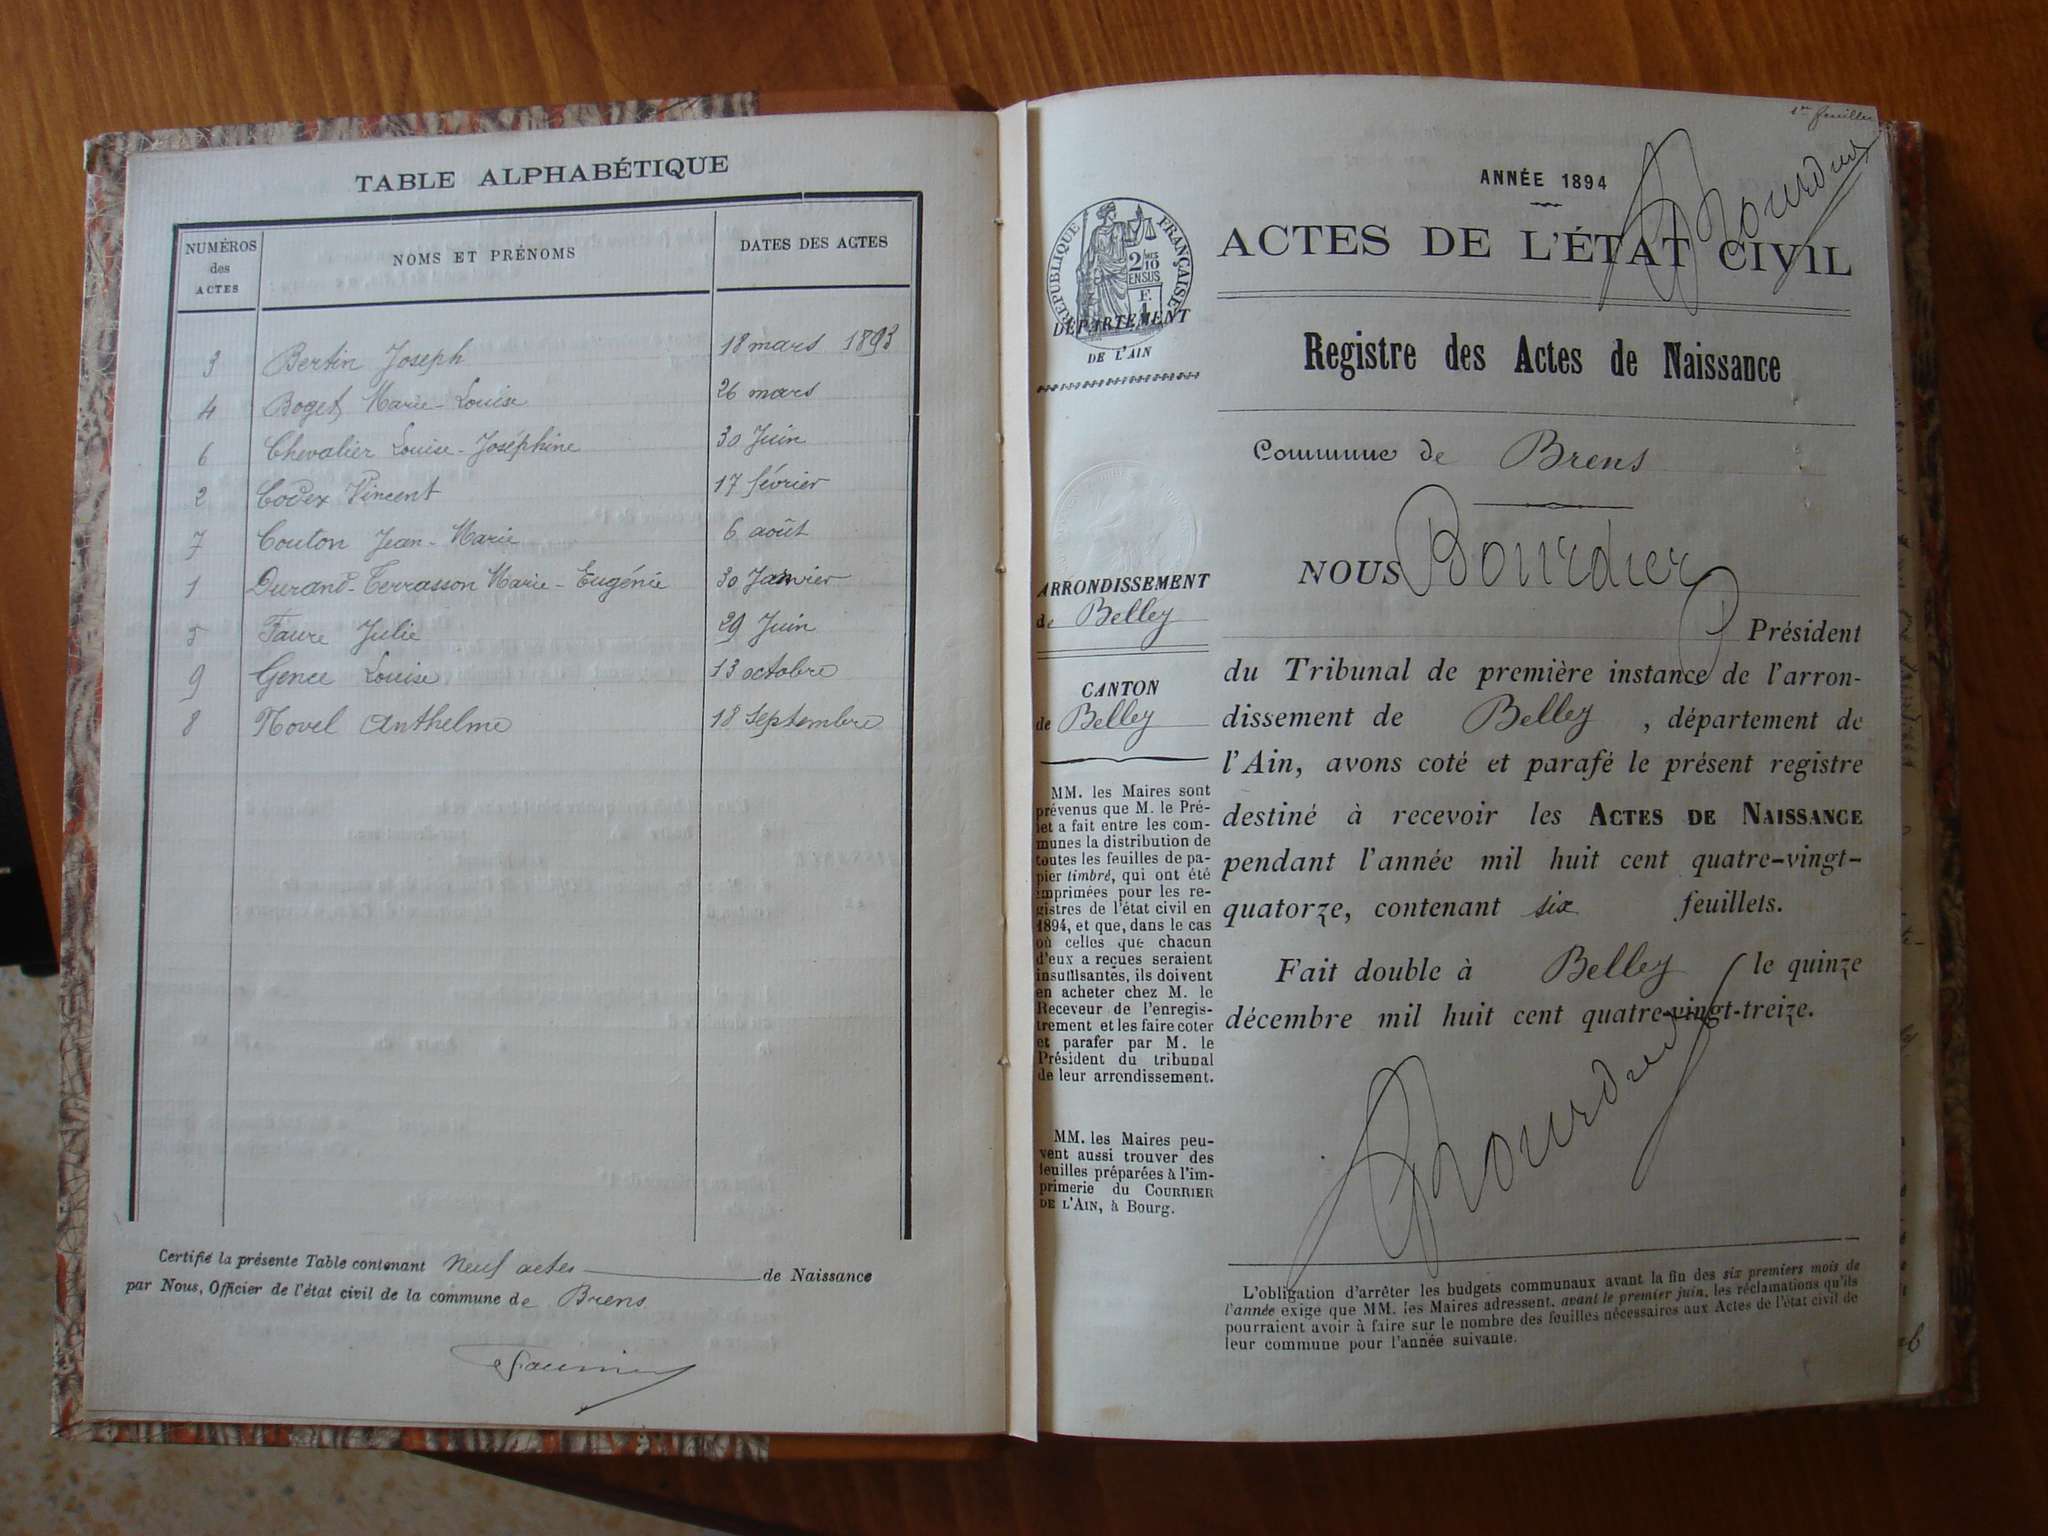 TABLE ALPHABÉTIQUE
NUMÉROS des ACTES
NOMS ET PRÉNOMS
DATES DES ACTES
3 Bertin Joseph 18 mars 1893
4 Boget Marie-Louise 26 mars
6 Chevalier Louise-Joséphine 30 Juin
2 Codex Vincent 17 février
7 Couton Jean-Marie 6 août
1 Durand-Terrasson Marie-Eugénie 30 Janvier
5 Faure Julie 29 Juin
9 Gence Louise 13 octobre
8 Novel Anthelme 18 septembre
Certifié la présente Table contenant Neuf actes de Naissance
par Nous, Officier de l'état civil de la commune de Brens
1er feuillet
ANNÉE 1894
Bourdier
ACTES DE L'ÉTAT CIVIL
RÉPUBLIQUE FRANÇAISE
2/10 EN SUS
DÉPARTEMENT
DE L'AIN
Registre des Actes de Naissance
Commune de Brens
ARRONDISSEMENT
de Belley
CANTON
de Belley
MM. les Maires sont
prévenus que M. le Pré-
fet a fait entre les com-
munes la distribution de
toutes les feuilles de pa-
pier timbré, qui ont été
imprimées pour les re-
gistres de l'état civil en
1894, et que, dans le cas
où celles que chacun
d'eux a reçues seraient
insuffisantes, ils doivent
en acheter chez M. le
Receveur de l'enregis-
trement et les faire coter
et parafer par M. le
Président du tribunal
de leur arrondissement.
MM. les Maires peu-
vent aussi trouver des
feuilles préparées à l'im-
primerie du COURRIER
DE L'AIN, à Bourg.
NOUS Bourdier
Président
du Tribunal de première instance de l'arron-
dissement de Belley, département de
l'Ain, avons coté et parafé le présent registre
destiné à recevoir les ACTES DE NAISSANCE
pendant l'année mil huit cent quatre-vingt-
quatorze, contenant six feuillets.
Fait double à Belley le quinze
décembre mil huit cent quatre-vingt-treize.
Bourdier
L'obligation d'arrêter les budgets communaux avant la fin des six premiers mois de
l'année exige que MM. les Maires adressent, avant le premier juin, les réclamations qu'ils
pourraient avoir à faire sur le nombre des feuilles nécessaires aux Actes de l'état civil de
leur commune pour l'année suivante.